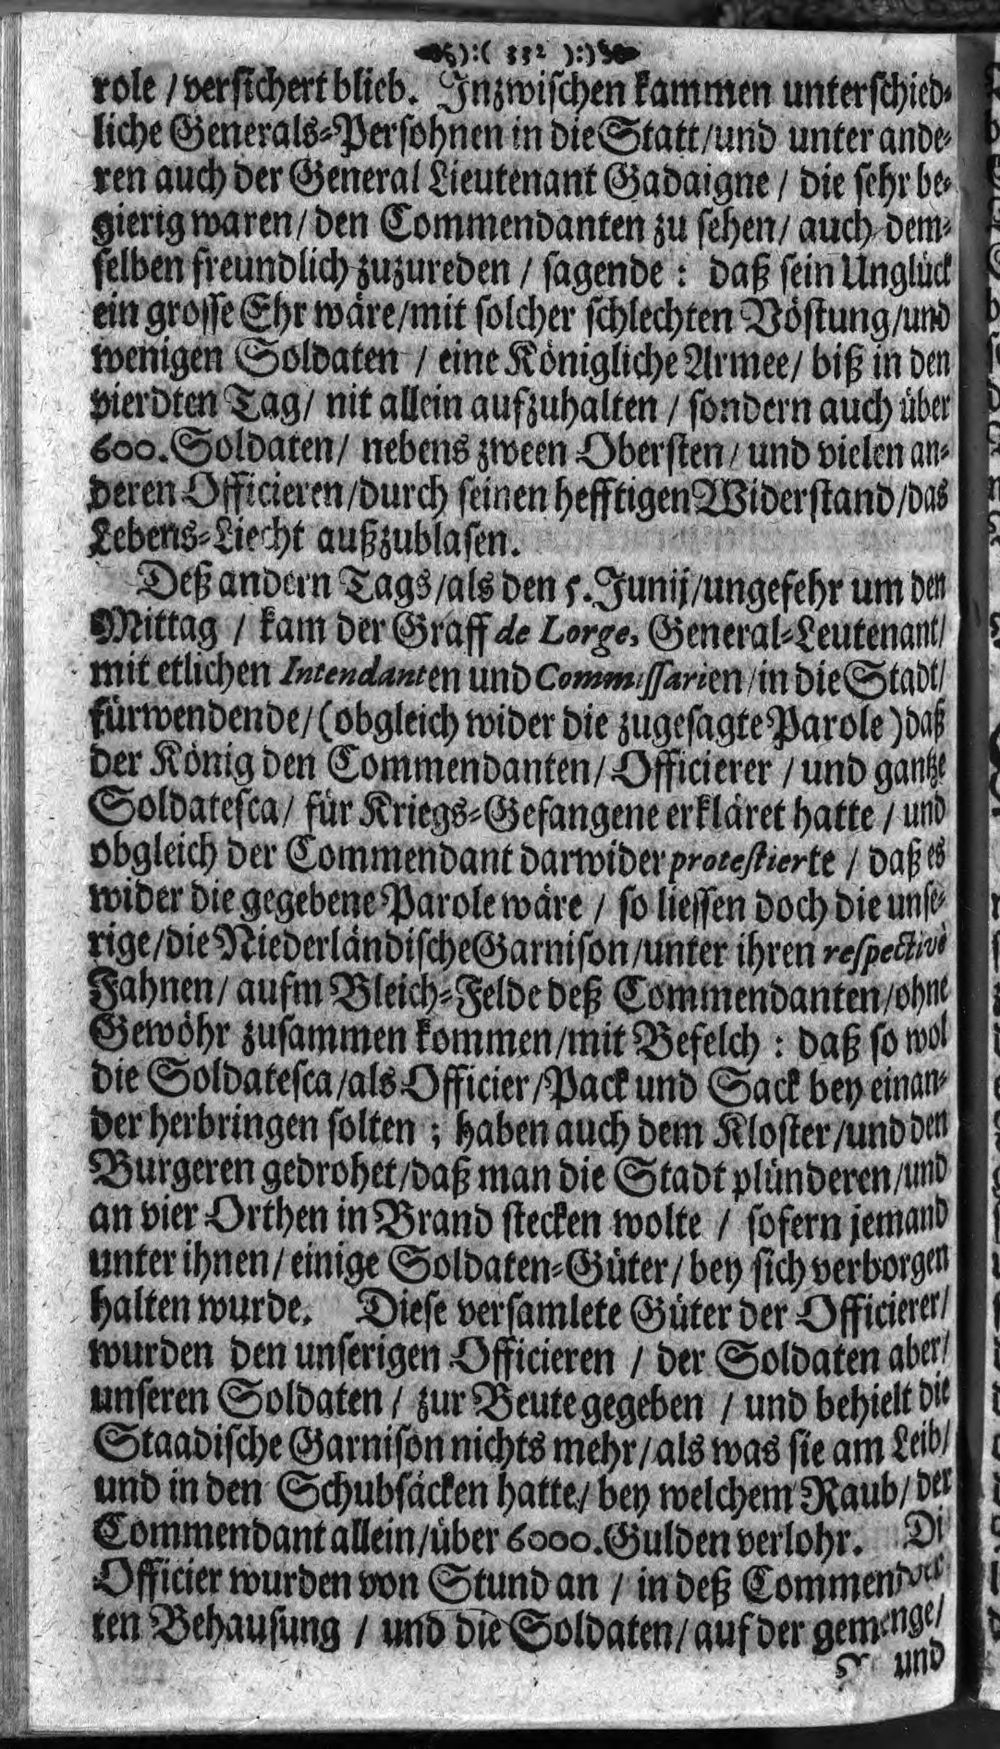 ):( 332 ):)
role / versichert blieb. Inzwischen kammen unterschied-
liche Generals-Persohnen in die Statt/und unter ande-
ren auch der General Lieutenant Gadaigne / die sehr be-
gierig waren/ den Commendanten zu sehen/ auch dem-
selben freundlich zuzureden / sagende : daß sein Unglück
ein grosse Ehr wäre/mit solcher schlechten Vöstung/und
wenigen Soldaten / eine Königliche Armee/ biß in den
vierdten Tag/ nit allein aufzuhalten / sondern auch über
600. Soldaten/ nebens zween Obersten / und vielen an-
deren Officieren/durch seinen hefftigen Widerstand/das
Lebens-Liecht außzublasen.
Deß andern Tags/als den 5. Junij/ungefehr um den
Mittag / kam der Graff de Lorge, General-Leutenant/
mit etlichen Intendanten und Commissarien/in die Stadt/
fürwendende/(obgleich wider die zugesagte Parole) daß
der König den Commendanten/ Officierer / und gantze
Soldatesca/ für Kriegs-Gefangene erkläret hatte / und
obgleich der Commendant darwider protestierte / daß es
wider die gegebene Parole wäre / so liessen doch die unse-
rige/die Niederländische Garnison/unter ihren respectivè
Fahnen/ aufm Bleich-Felde deß Commendanten/ohne
Gewöhr zusammen kommen/mit Befelch : daß so wol
die Soldatesca/als Officier/Pack und Sack bey einan-
der herbringen solten ; haben auch dem Kloster/und den
Burgeren gedrohet/daß man die Stadt plünderen/und
an vier Orthen in Brand stecken wolte / sofern jemand
unter ihnen/ einige Soldaten-Güter/ bey sich verborgen
halten wurde. Diese versamlete Güter der Officierer/
wurden den unserigen Officieren / der Soldaten aber/
unseren Soldaten / zur Beute gegeben / und behielt die
Staadische Garnison nichts mehr/als was sie am Leib/
und in den Schubsäcken hatte/ bey welchem Raub/ der
Commendant allein/über 6000. Gulden verlohr. Di
Officier wurden von Stund an / in deß Commen
ten Behausung / und die Soldaten/ auf der gemenge/
und